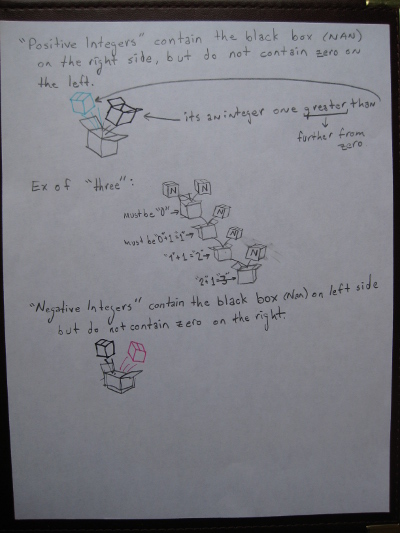 "Positive Integers" contain the black box (NAN)
on the right side, but do not contain zero on
the left.
its an integer one greater than
further from
zero
Ex of "three":
N N
must be "0" → N
must be "0"+1="1" → N
"1"+1="2" → N
"2"+1="3"
"Negative Integers" contain the black box (Nan) on left side
but do not contain zero on the right.